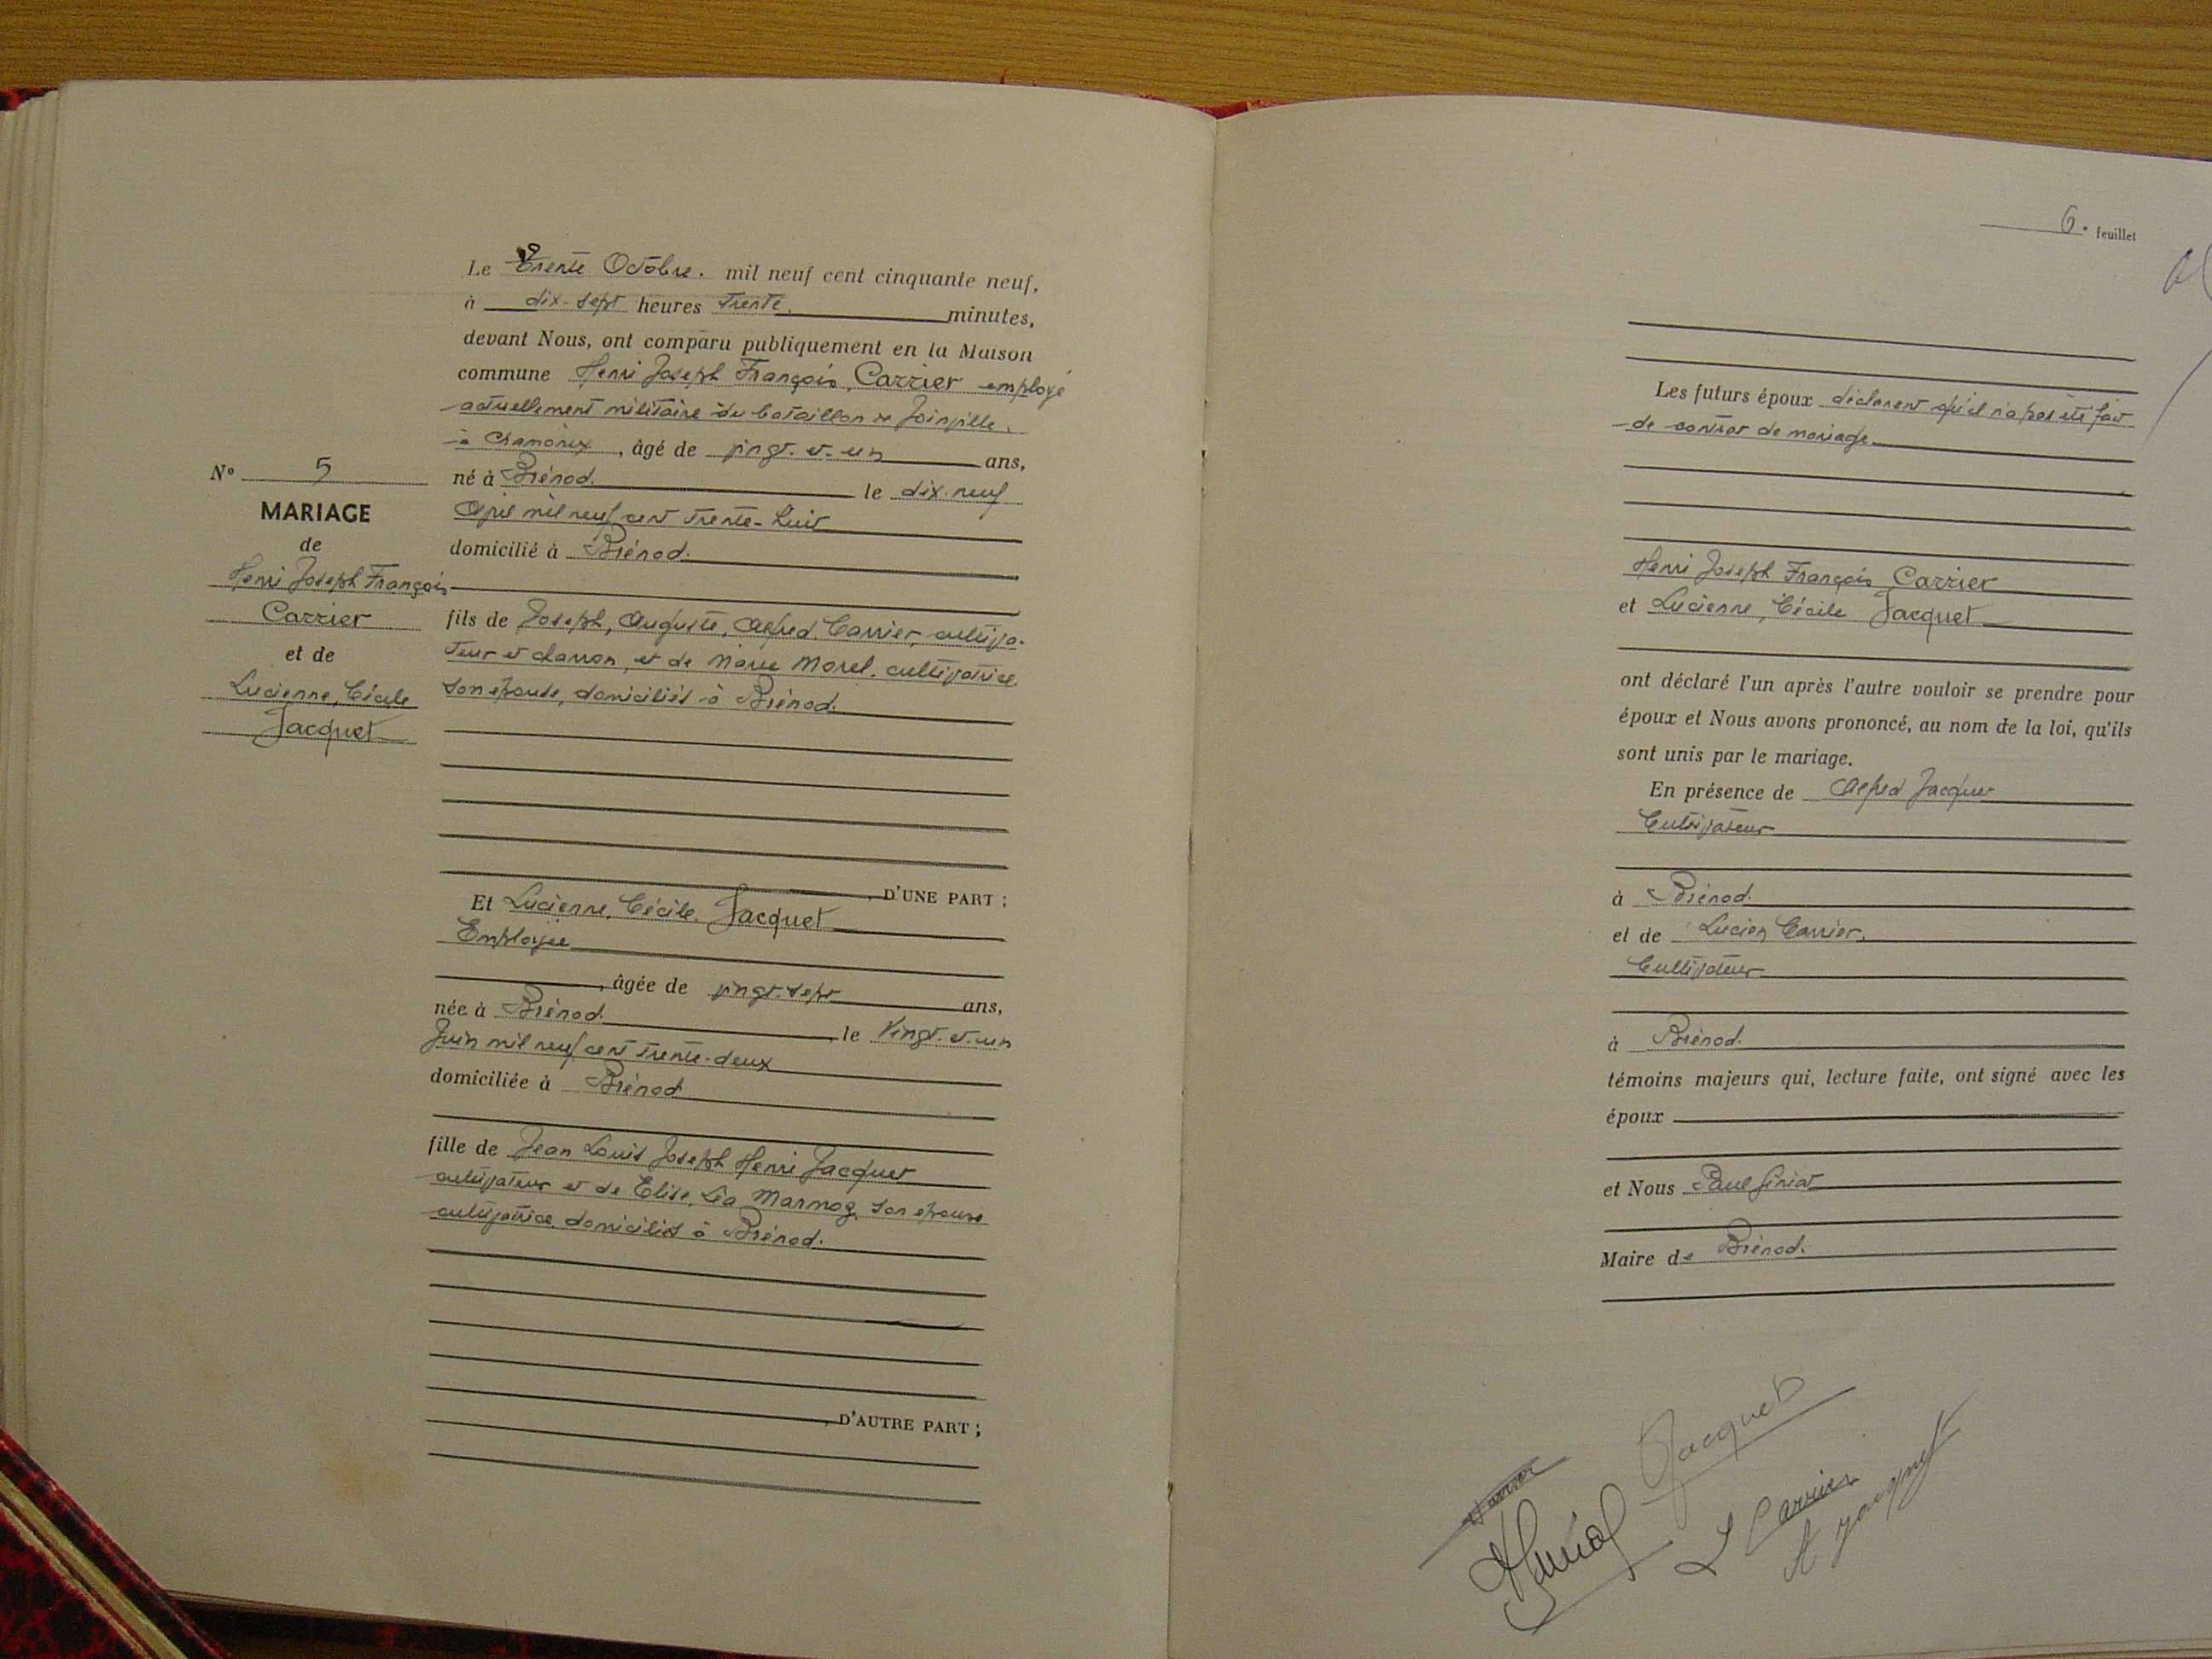 Le Trente Octobre. mil neuf cent cinquante neuf,
à dix-sept heures trente. minutes,
devant Nous, ont comparu publiquement en la Maison
commune Henri Joseph François Carrier employé
actuellement militaire du bataillon de Joinville.
à Chamonix, âgé de vingt-et-un ans,
né à Brénod. le dix-neuf
Avril mil neuf cent trente-huit
domicilié à Brénod.
fils de Joseph, Auguste, Alfred Carrier, cultiva-
teur et charron, et de Marie Morel, cultivatrice.
son épouse, domiciliés à Brénod.
, D'UNE PART ;
N° 5
MARIAGE
de
Henri Joseph François
Carrier
et de
Lucienne, Cécile
Jacquet
Et Lucienne, Cécile. Jacquet
Employée
, âgée de vingt-sept ans,
née à Brénod. le Vingt-et-un
Juin mil neuf cent trente-deux
domiciliée à Brénod
fille de Jean Louis Joseph Henri Jacquet
cultivateur et de Elise, Léa Marmoz, son épouse
cultivatrice domiciliés à Brénod.
, D'AUTRE PART ;
6. feuillet
Les futurs époux déclarent qu'il n'a pas été fait
de contrat de mariage
Henri Joseph François Carrier
et Lucienne, Cécile Jacquet
ont déclaré l'un après l'autre vouloir se prendre pour
époux et Nous avons prononcé, au nom de la loi, qu'ils
sont unis par le mariage.
En présence de Alfred Jacquet
Cultivateur
à Brénod.
et de Lucien Carrier.
Cultivateur
à Brénod.
témoins majeurs qui, lecture faite, ont signé avec les
époux
et Nous Paul Giriat
Maire de Brénod.
Jacquet
Carrier
L Carrier
A Jacquet